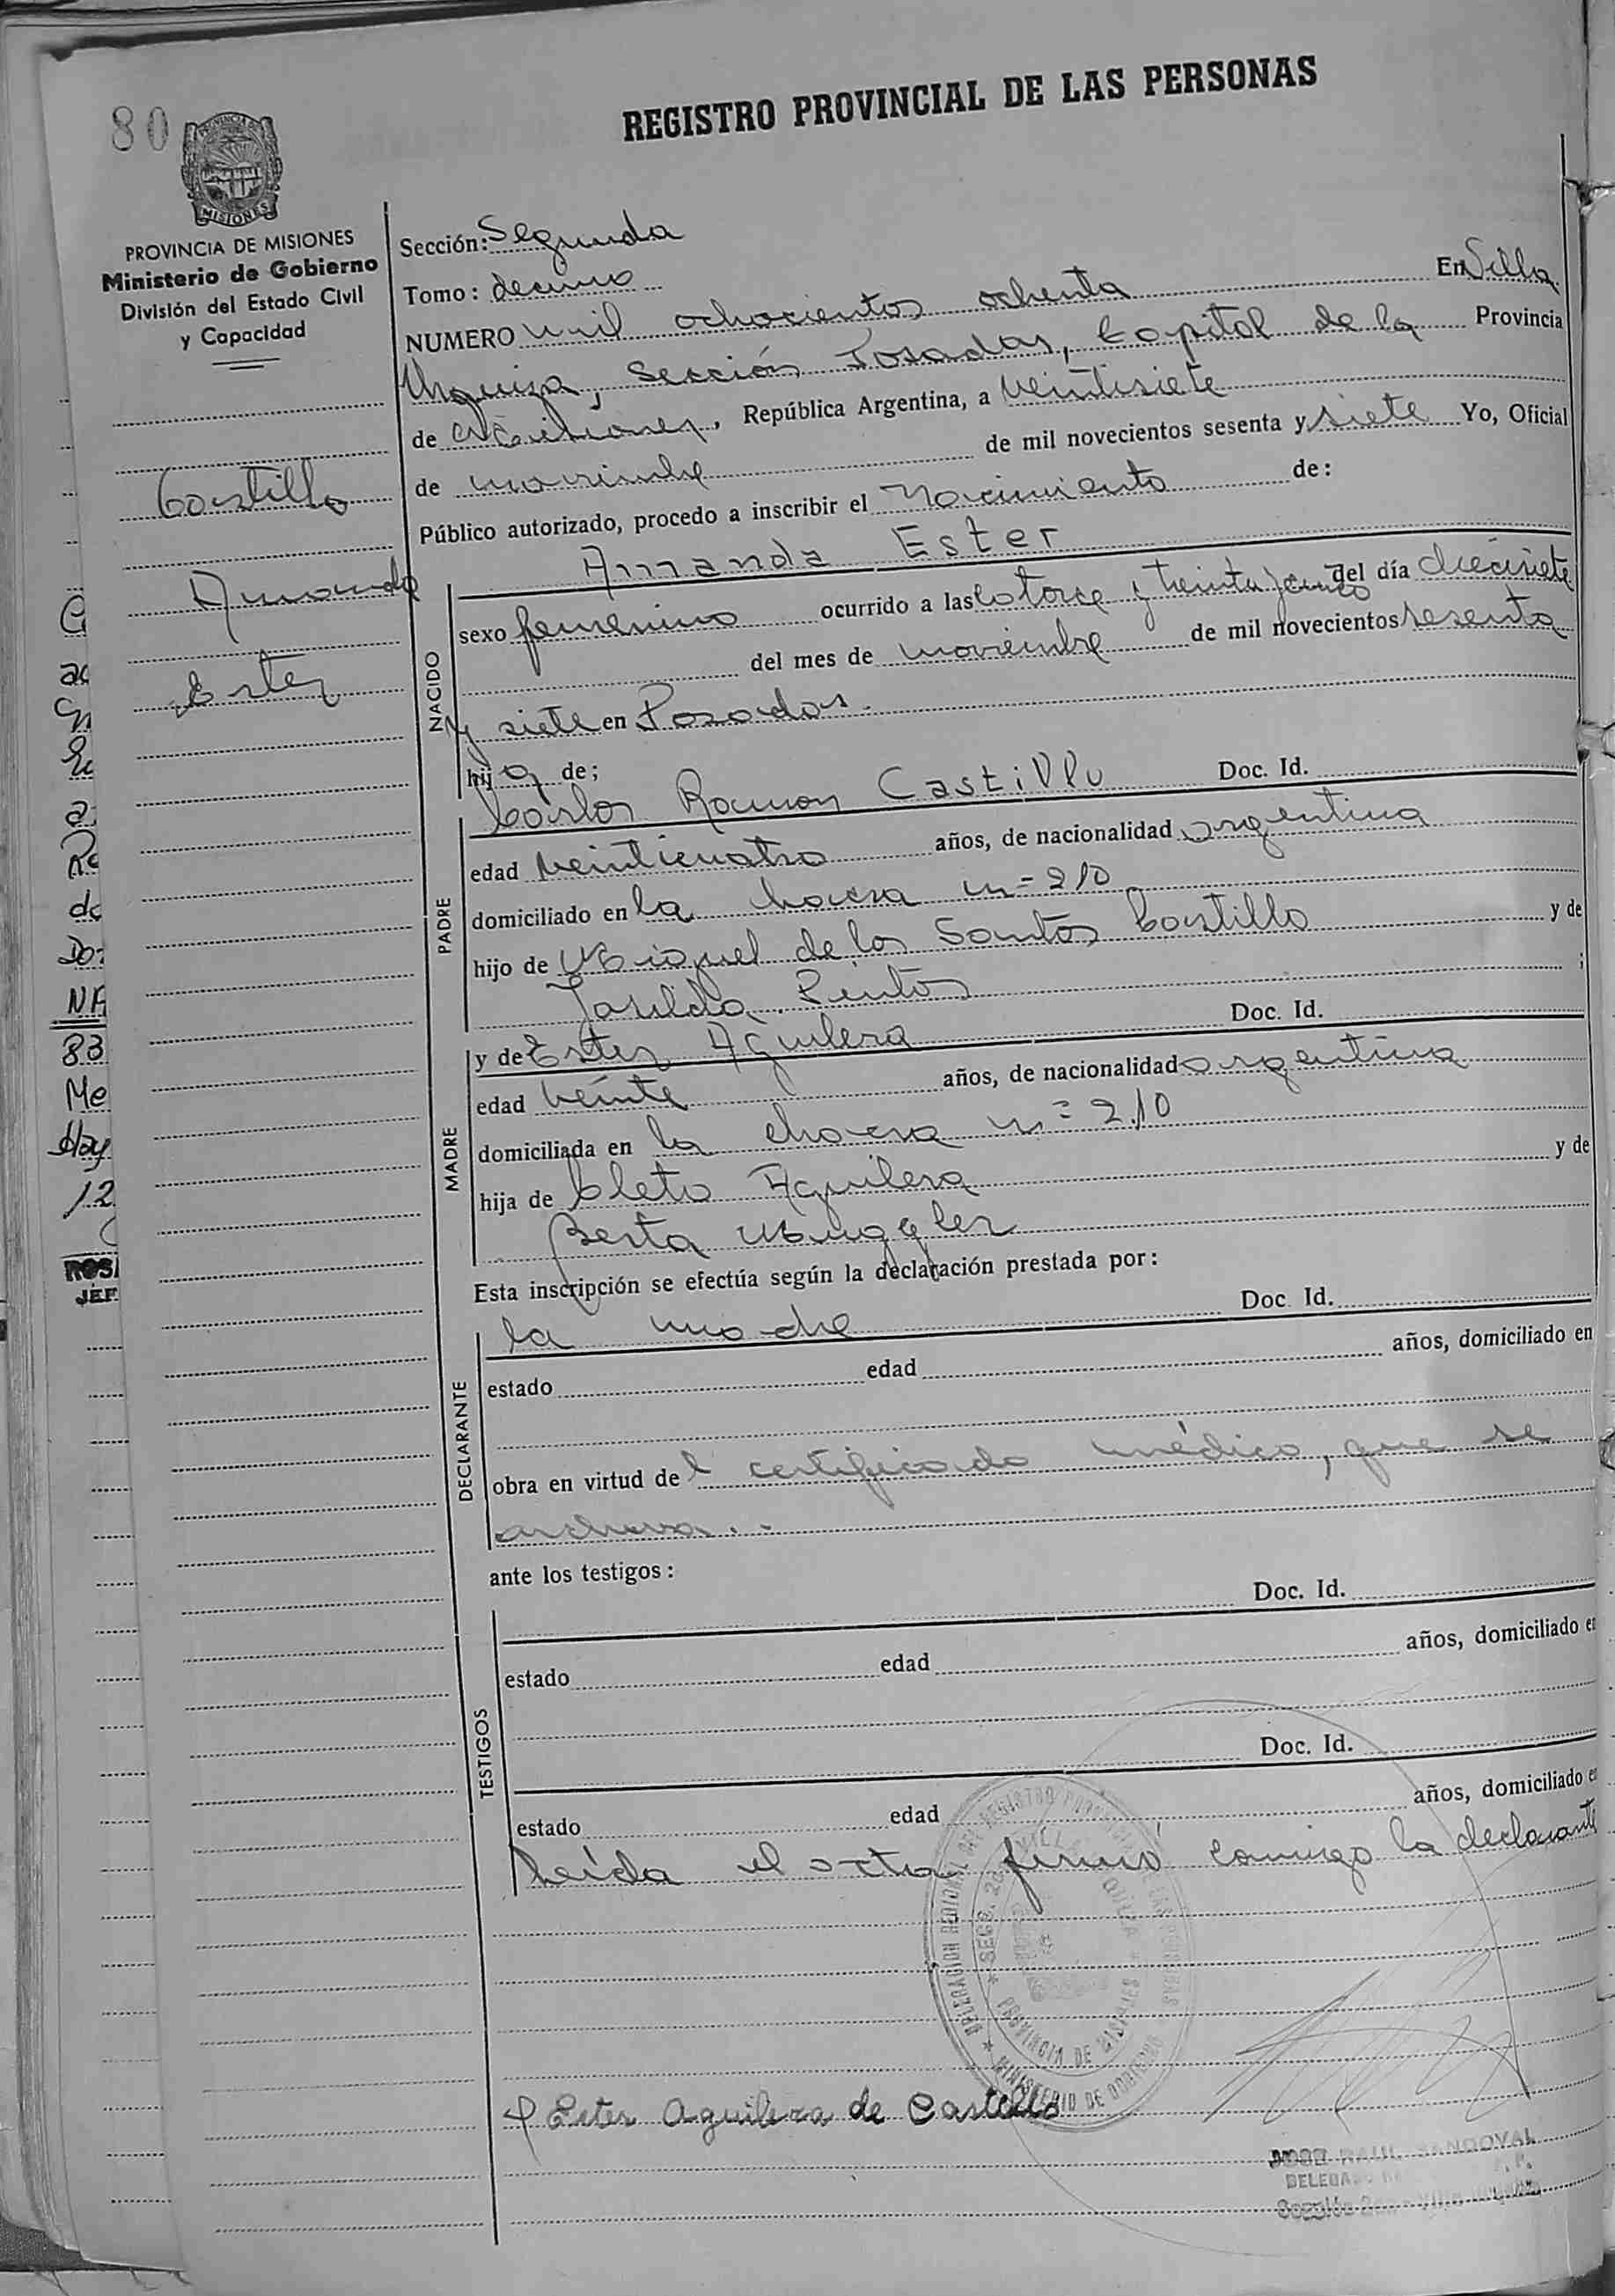 REGISTRO PROVINCIAL DE LAS PERSONAS
80
PROVINCIA DE MISIONES
Ministerio de Gobierno
División del Estado Civil
y Capacidad
Castillo
Amanda
Ester
Sección: Segunda
Tomo: decimo
NUMERO mil ochocientos ochenta En Villa
Urquiza, Sección Posadas, Capital de la Provincia
de Misiones, República Argentina, a veintisiete
de noviembre de mil novecientos sesenta y siete Yo, Oficial
Público autorizado, procedo a inscribir el Nacimiento de:
Amanda Ester
NACIDO
sexo femenino ocurrido a las catorce y treinta y cinco del día diecisiete
del mes de noviembre de mil novecientos sesenta
y siete en Posadas.
hija de;
PADRE
Carlos Ramon Castillo Doc. Id.
edad veinticuatro años, de nacionalidad argentina
domiciliado en la chacra n= 210
hijo de Miguel de los Santos Castillo y de
Pintos ;
MADRE
y de Ester Aguilera Doc. Id.
edad veinte años, de nacionalidad argentina
domiciliada en la chacra n= 210
hija de Cleto Aguilera y de
Berta Muggler
Esta inscripción se efectúa según la declaración prestada por:
DECLARANTE
la madre Doc. Id.
estado edad años, domiciliado en
obra en virtud del certificado médico, que se
archiva..
ante los testigos:
TESTIGOS
Doc. Id.
estado edad años, domiciliado en
Doc. Id.
estado edad años, domiciliado en
Leída el acta firmó conmigo la declarante
DELEGACION REGIONAL DEL REGISTRO PROVINCIAL DE LAS PERSONAS
* MINISTERIO DE GOBIERNO
* SECC. 2a. VILLA URQUIZA *
PROVINCIA DE MISIONES
Ester Aguilera de Castillo
RAUL SANDOVAL
Sección 2a. Villa Urquiza
ac
a
do
83
Me
Hay
12
ROS
JEF